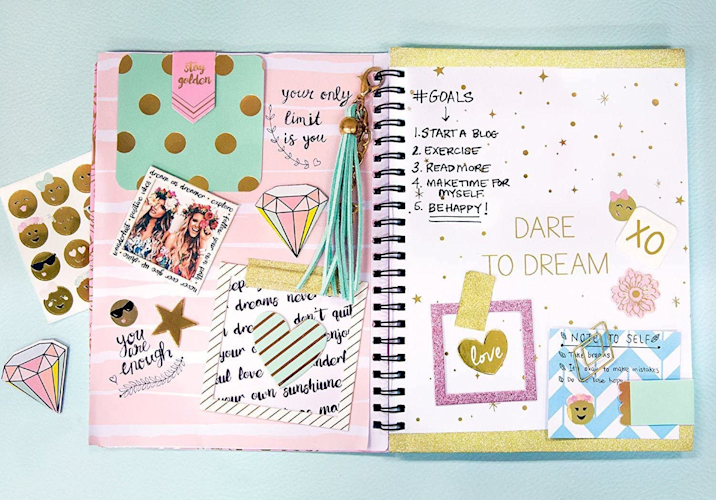 stay
golden
your only
limit
is you
dream on dreamer
explore
follow your own path
never give up
shine
wonderlust
positive vibes
you
are
enough
dreams never
don't quit
your
enjoy
ful love
your own sunshine
#GOALS
1. START A BLOG
2. EXERCISE
3. READ MORE
4. MAKE TIME FOR
MYSELF
5. BE HAPPY!
DARE
TO DREAM
XO
love
NOTE TO SELF
Take breaks
It's okay to make mistakes
Do not lose hope